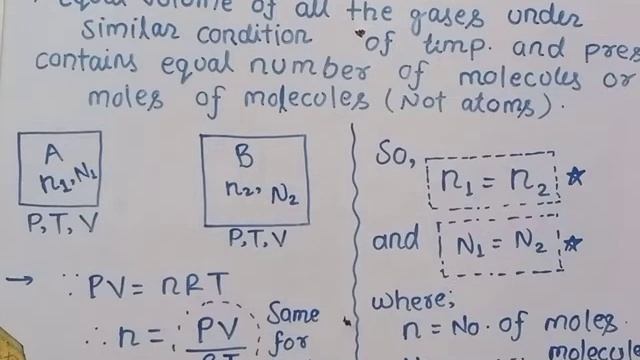 equal volume of all the gases under
similar condition of temp. and pres
contains equal number of molecules or
moles of molecules (Not atoms).
A
n₁, N₁
P, T, V
B
n₂, N₂
P, T, V
→ ∵ PV = nRT
∴ n = PV
Same
for
So,
n₁ = n₂ ☆
and N₁ = N₂ ☆
where;
n = No. of moles.
molecule